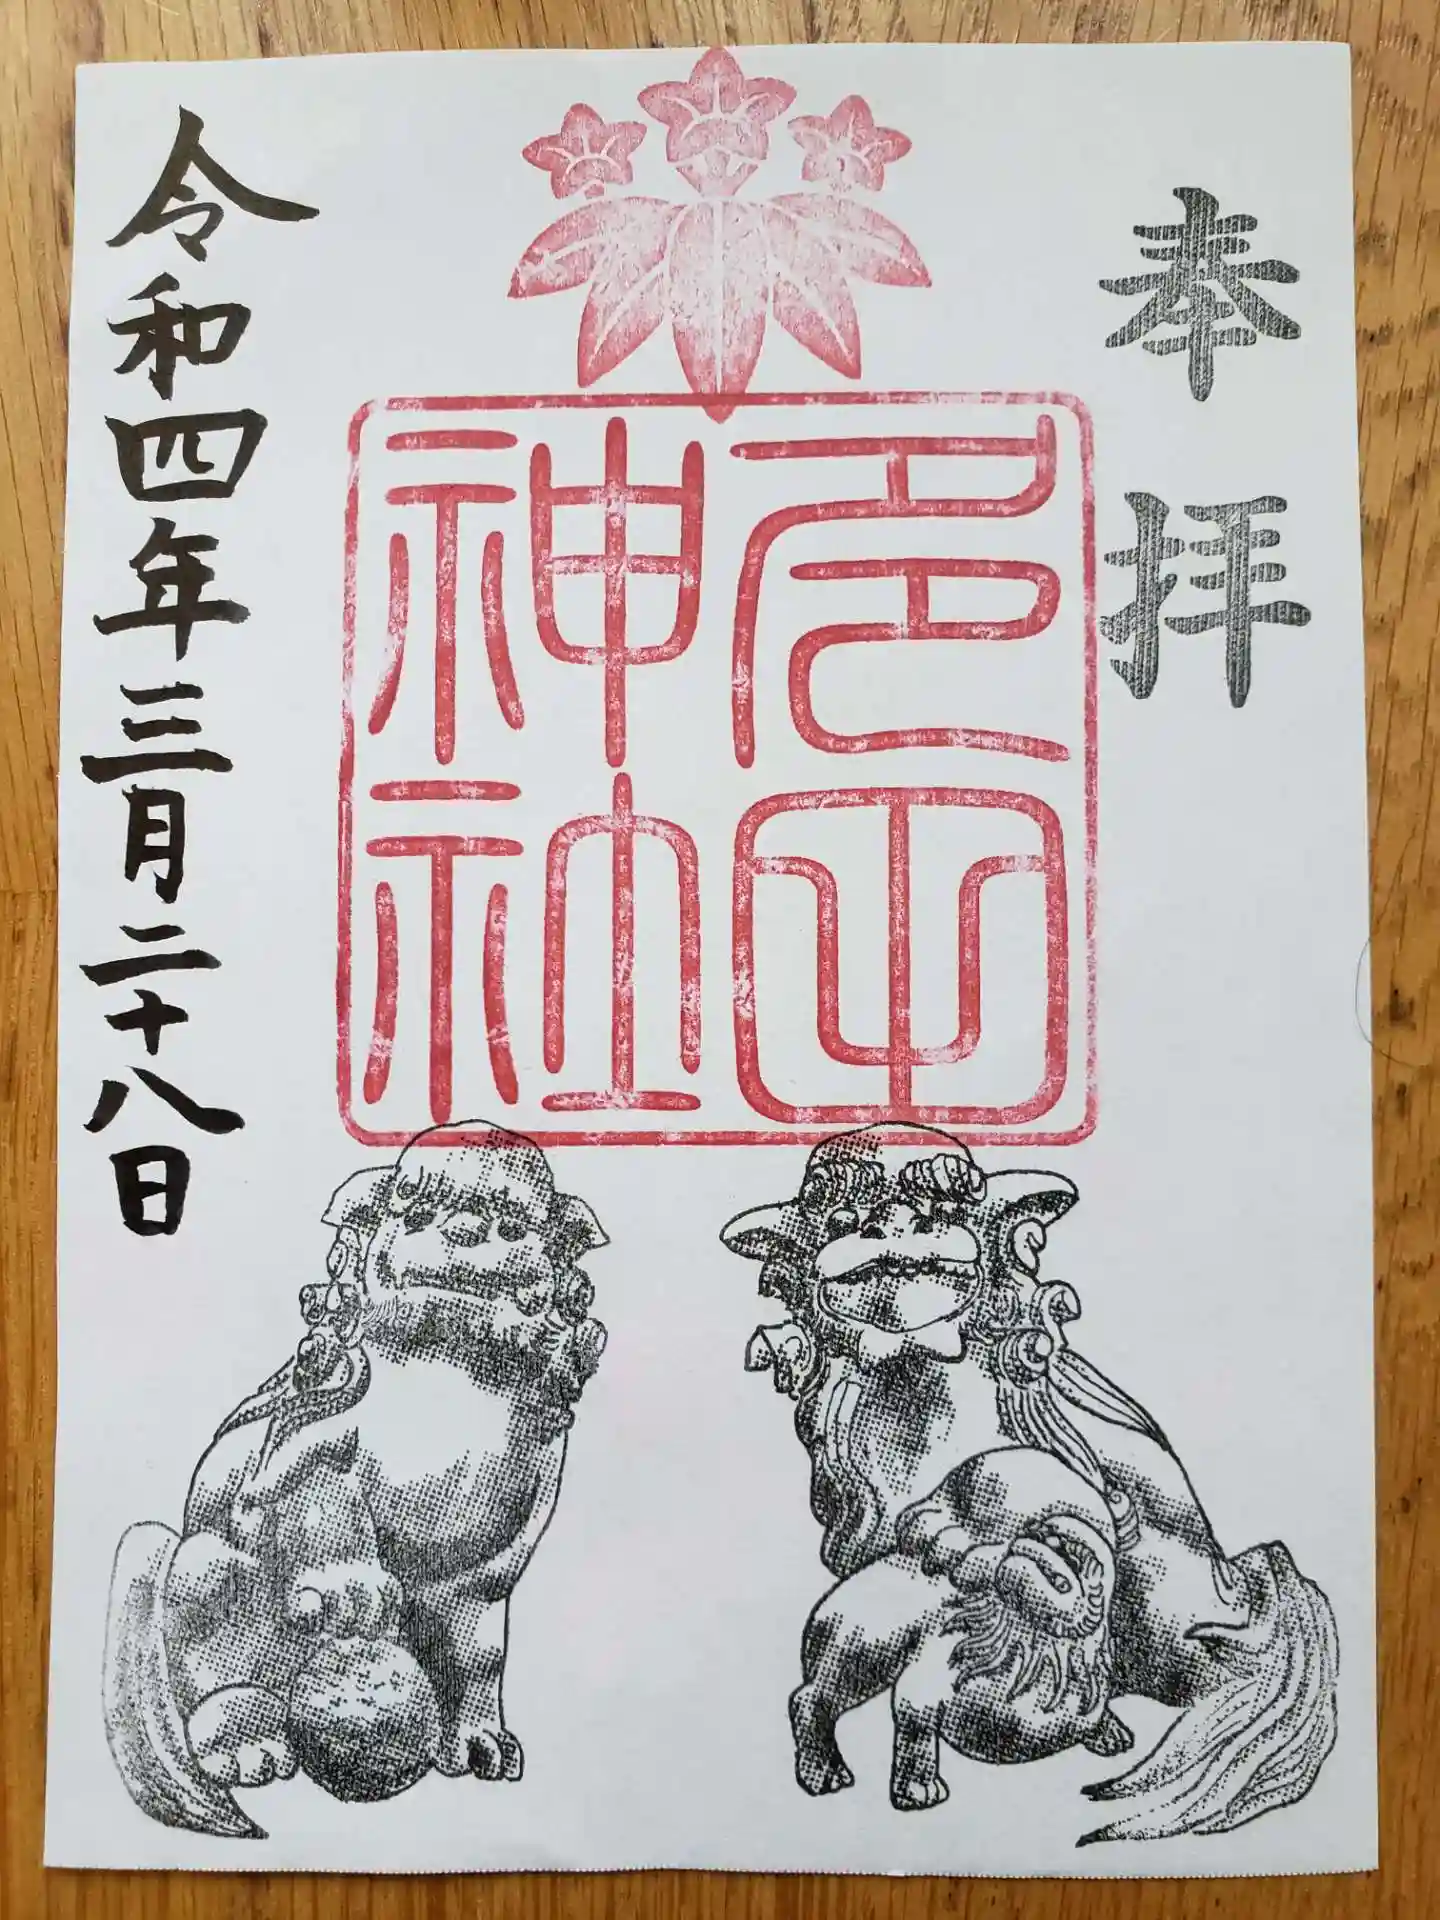 奉拝
多田
神社
令和四年三月二十八日